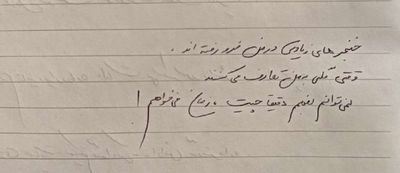 خنجرهای زیادی در من فرو رفته اند.
وقتی گلی به من تعارف می کنند
نمی توانم بفهم دقیقا چیست، زمان می خواهم!